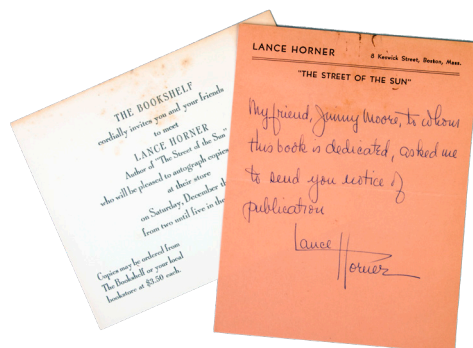 THE BOOKSHELF
cordially invites you and your friends
to meet
LANCE HORNER
Author of "The Street of the Sun"
who will be pleased to autograph copies
at their store
on Saturday, December
from two until five in the
Copies may be ordered from
The Bookshelf or your local
bookstore at $3.50 each.
LANCE HORNER
8 Kenwick Street, Boston, Mass.
"THE STREET OF THE SUN"
My friend, Jimmy Moore, to whom
this book is dedicated, asked me
to send you notice of
publication
Lance
Horner